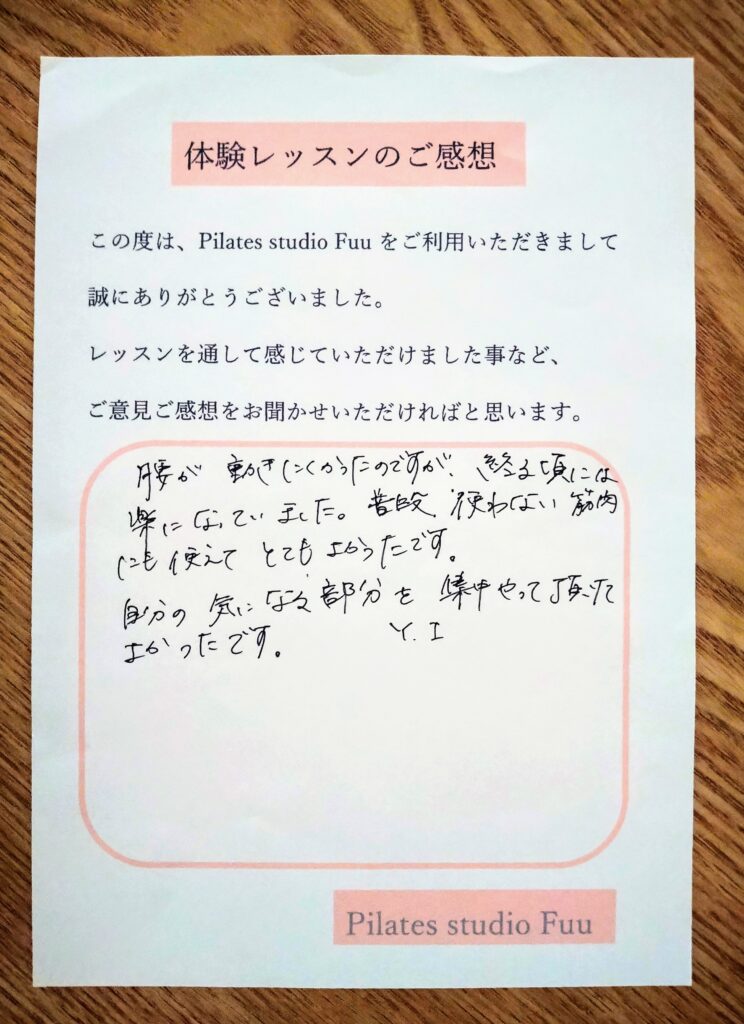 体験レッスンのご感想
この度は、Pilates studio Fuu をご利用いただきまして
誠にありがとうございました。
レッスンを通して感じていただけました事など、
ご意見ご感想をお聞かせいただければと思います。
腰が動きにくかったのですが、終る頃には
楽になっていました。普段、使わない筋肉
にも使えてとてもよかったです。
自分の気になる部分を集中やって頂いて
よかったです。 Y. I
Pilates studio Fuu